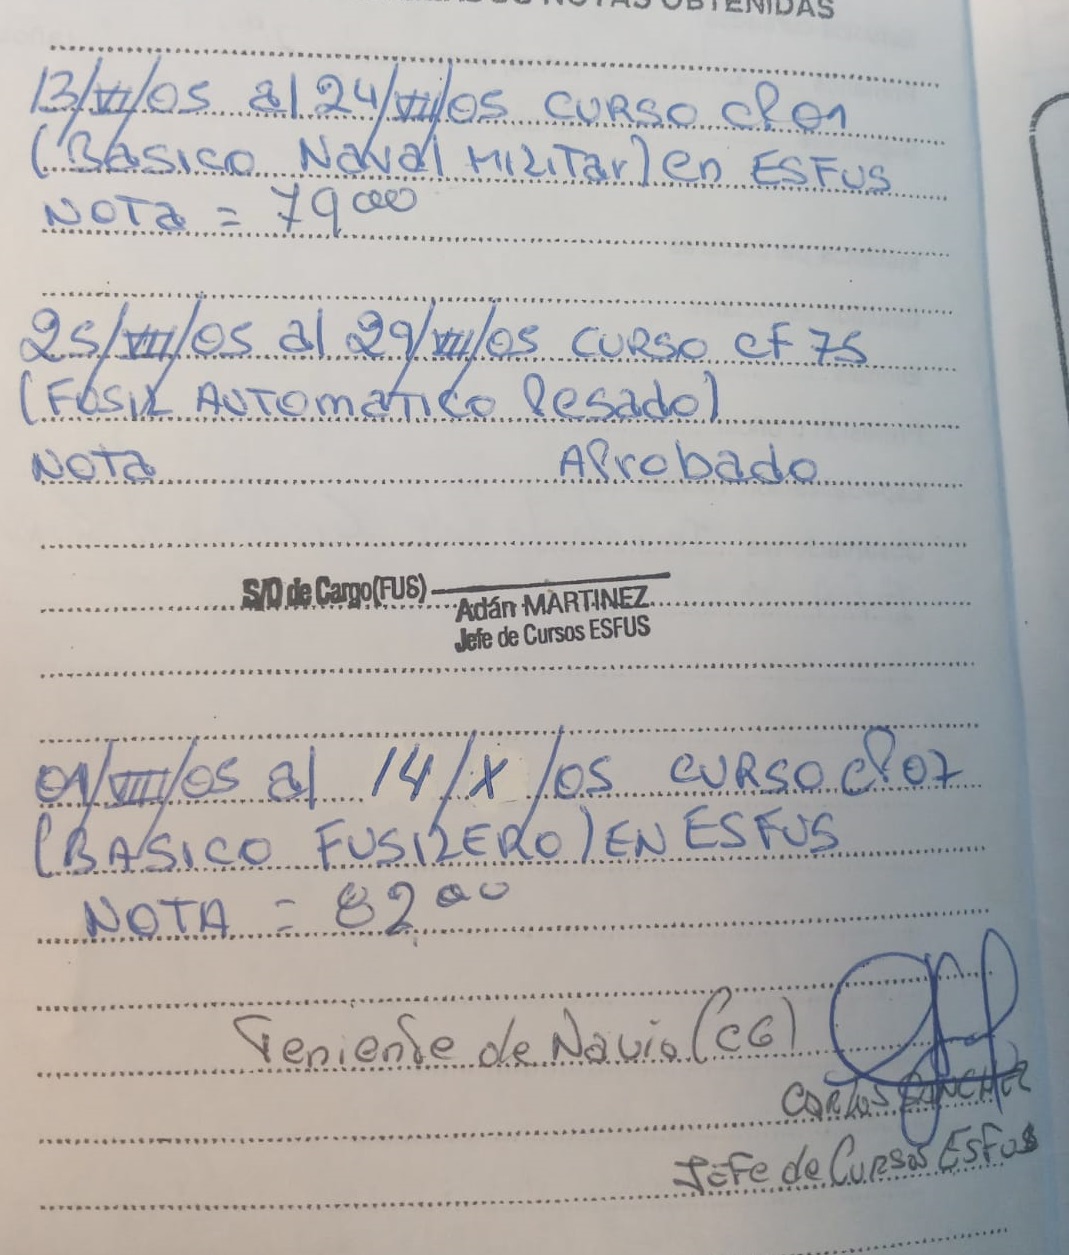 NOTAS OBTENIDAS
13/VI/05 al 24/VII/05 CURSO CP01
(BASICO Naval MILITar) en ESFUS
NOTa = 79 000
25/VII/05 al 29/VII/05 CURSO CF75
(FUSIL AUTOmaTICO Pesado)
NOTa Aprobado
S/O de Cargo(FUS)
Adán MARTINEZ
Jefe de Cursos ESFUS
01/VIII/05 al 14/X/05 CURSO CP07
(BASICO FUSILERO) EN ESFUS
NOTA = 82 00
Teniente de Navio (CG)
CARLOS SANCHEZ
JeFe de CURSOS ESFUS